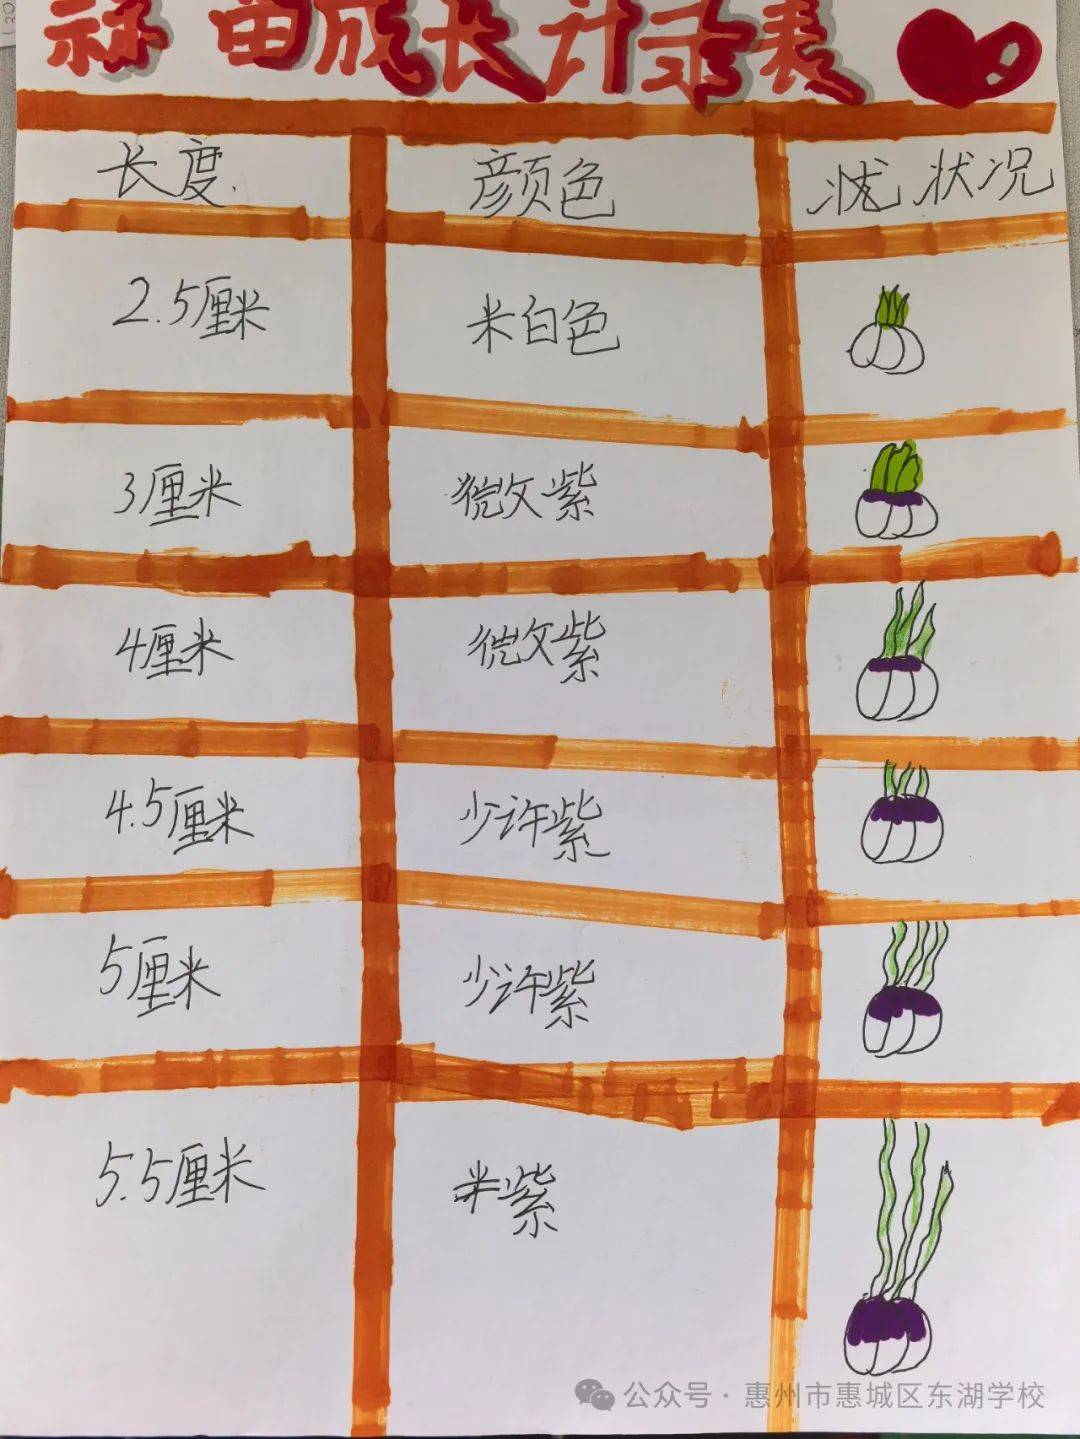 蒜苗成长计录表
长度 颜色 状况
2.5厘米 米白色
3厘米 微紫
4厘米 微紫
4.5厘米 少许紫
5厘米 少许紫
5.5厘米 半紫
公众号 · 惠州市惠城区东湖学校